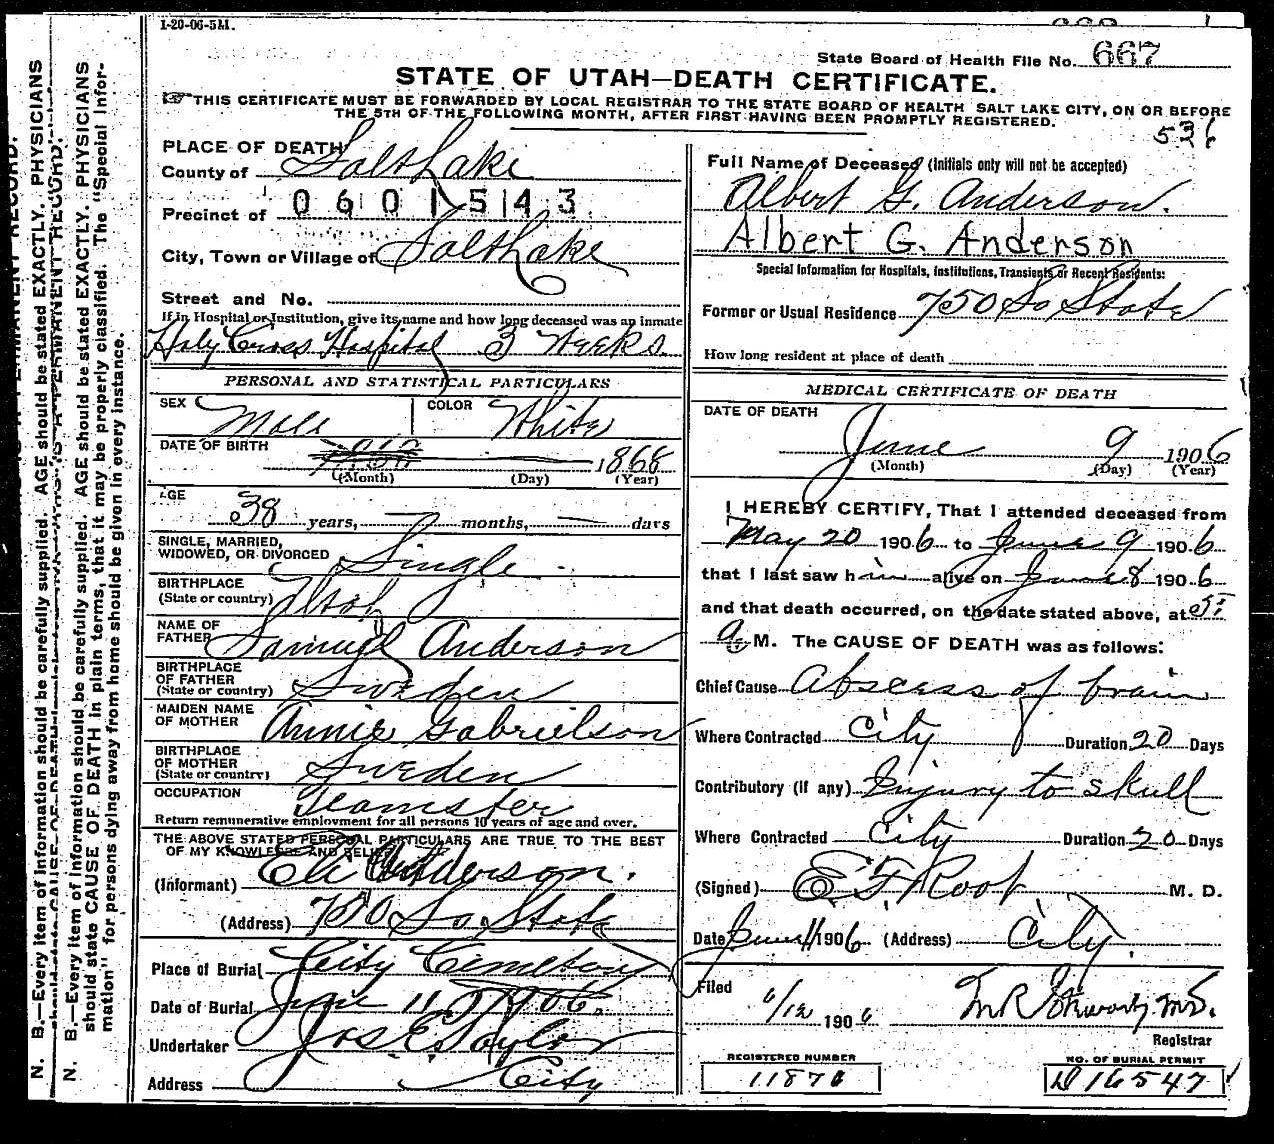 1-20-06-5M.
State Board of Health File No. 667
STATE OF UTAH—DEATH CERTIFICATE.
THIS CERTIFICATE MUST BE FORWARDED BY LOCAL REGISTRAR TO THE STATE BOARD OF HEALTH SALT LAKE CITY, ON OR BEFORE
THE 5TH OF THE FOLLOWING MONTH, AFTER FIRST HAVING BEEN PROMPTLY REGISTERED.
536
PLACE OF DEATH
County of Salt Lake
Precinct of 0601543
City, Town or Village of Salt Lake
Street and No.
If in Hospital or Institution, give its name and how long deceased was an inmate
Holy Cross Hospital 3 Weeks
PERSONAL AND STATISTICAL PARTICULARS
SEX Male COLOR White
DATE OF BIRTH 1868
(Month) (Day) (Year)
AGE
38 years, months, days
SINGLE, MARRIED,
WIDOWED, OR DIVORCED Single
BIRTHPLACE
(State or country) Utah
NAME OF
FATHER Samuel Anderson
BIRTHPLACE
OF FATHER
(State or country) Sweden
MAIDEN NAME
OF MOTHER Annie Gabrielson
BIRTHPLACE
OF MOTHER
(State or country) Sweden
OCCUPATION Teamster
Return remunerative employment for all persons 10 years of age and over.
THE ABOVE STATED PERSONAL PARTICULARS ARE TRUE TO THE BEST
OF MY KNOWLEDGE AND BELIEF
(Informant) Eli Anderson.
(Address) 750 So State
Place of Burial City Cemetery
Date of Burial June 11, 1906.
Undertaker Jos E. Taylor
Address City
Full Name of Deceased (Initials only will not be accepted)
Albert G. Anderson.
Albert G. Anderson
Special Information for Hospitals, Institutions, Transients or Recent Residents:
Former or Usual Residence 750 So State
How long resident at place of death
MEDICAL CERTIFICATE OF DEATH
DATE OF DEATH
June 9 1906
(Month) (Day) (Year)
I HEREBY CERTIFY, That I attended deceased from
May 20 1906 to June 9 1906
that I last saw him alive on June 8 1906
and that death occurred, on the date stated above, at 5:
a. M. The CAUSE OF DEATH was as follows:
Chief Cause Abscess of brain
Where Contracted City Duration 20 Days
Contributory (if any) Injury to skull
Where Contracted City Duration 20 Days
(Signed) E. F. Root M. D.
Date June 11 1906 (Address) City.
Filed
6/12 1906 M.D.
Registrar
REGISTERED NUMBER
NO. OF BURIAL PERMIT
D16547
N. B.—Every item of information should be carefully supplied. AGE should be stated EXACTLY. PHYSICIANS
should state CAUSE OF DEATH in plain terms, that it may be properly classified. The "Special Infor-
mation" for persons dying away from home should be given in every instance.
N. B.—Every item of information should be carefully supplied. AGE should be stated EXACTLY. PHYSICIANS